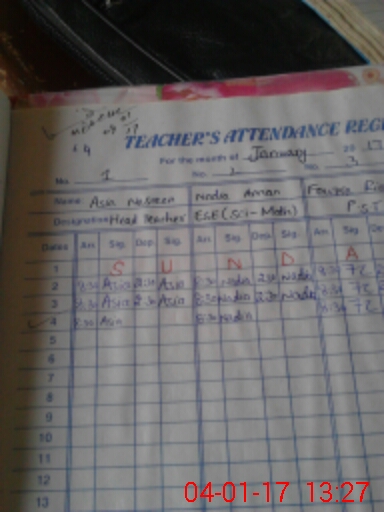 TEACHER'S ATTENDANCE REG
For the month of January 20 17
No. 1 No. 2 3
Name Asia Nasreen Nadia Aman
Designation Head Teacher ESE (Sci-Math) P.S.T
Dates Arr. Sig. Dep. Sig. Arr. Sig. Dep. Sig. Arr. Sig.
1 S U N D A
2 8:30 Asia 2:30 Asia 8:30 Nadia 2:30 Nadia 8:30
3 8:30 Asia 2:30 Asia 8:30 Nadia 2:30 Nadia 8:30
4 8:30 Asia 8:30 Nadia 8:30
5
6
7
8
9
10
11
12
13
04-01-17 13:27